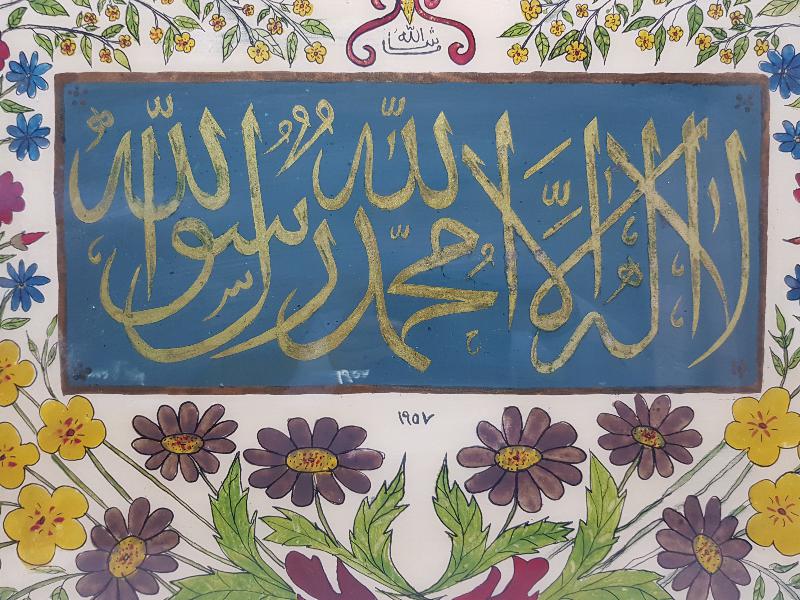 ماشاالله
لا اله الا الله محمد رسول الله
١٩٥٧